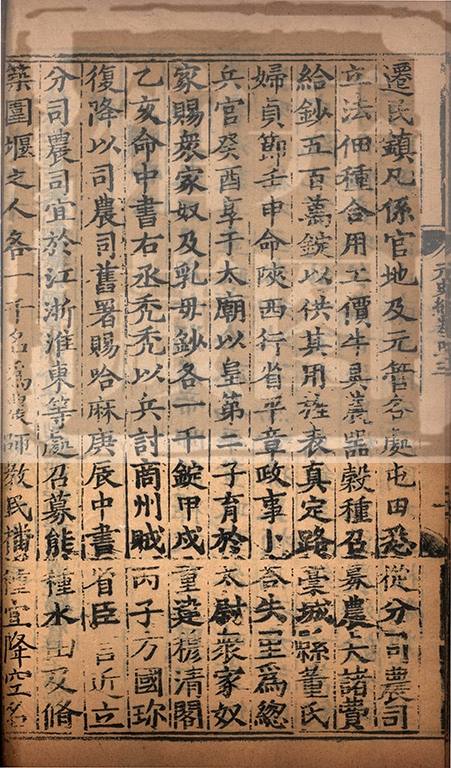 遷民鎮凡係官地及元管各處屯田悉從分司農司
立法佃種合用工價牛具農器穀種召募農夫諸費
給鈔五百萬錠以供其用旌表真定路藁城縣董氏
婦貞節壬申命陝西行省平章政事卜荅失里爲總
兵官癸酉享于太廟以皇第二子育於太尉衆家奴
家賜衆家奴及乳母鈔各一千錠甲戌重建穆清閣
乙亥命中書右丞禿禿以兵討商州賊丙子方國珍
復降以司農司舊署賜哈麻庚辰中書省臣言近立
分司農司宜於江浙淮東等處召募能種水田及脩
築圍堰之人各一千名爲農師教民播種宜降空名